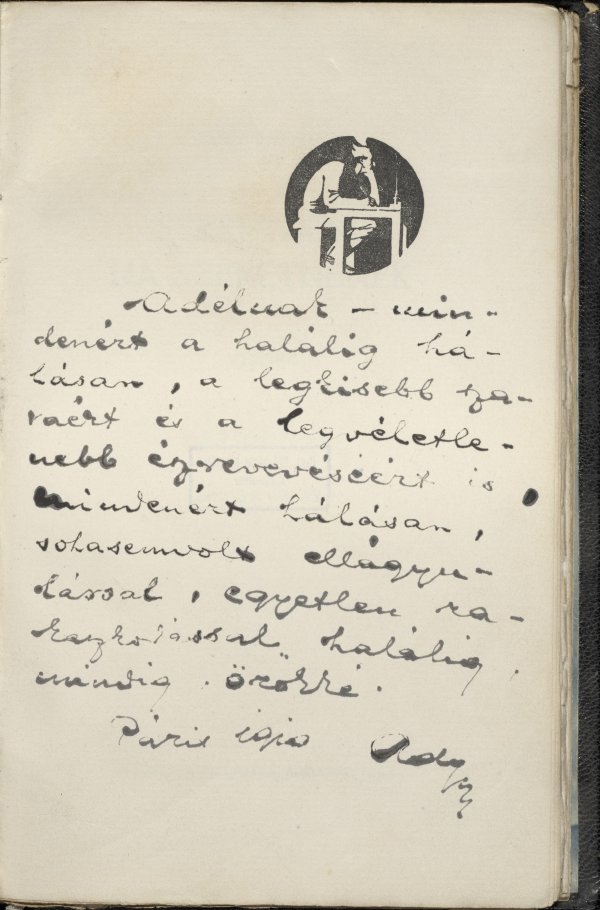 Adélnak – min-
denért a halálig há-
lásan, a legkisebb sza-
váért és a legvéletle-
nebb észrevevéséért is,
mindenért hálásan,
sohasemvolt ellágyu-
lással, egyetlen ra-
gaszkodással halálig,
mindig. örökké.
Páris 1910 Ady